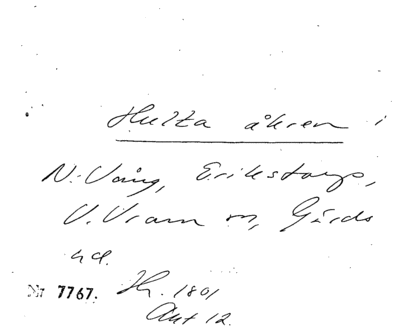 Hulta åkren i
N. Vång, Erikstorps,
V. Vram m, Gärds
hd.
Nr 7767. Hr. 1801
Akt 12.